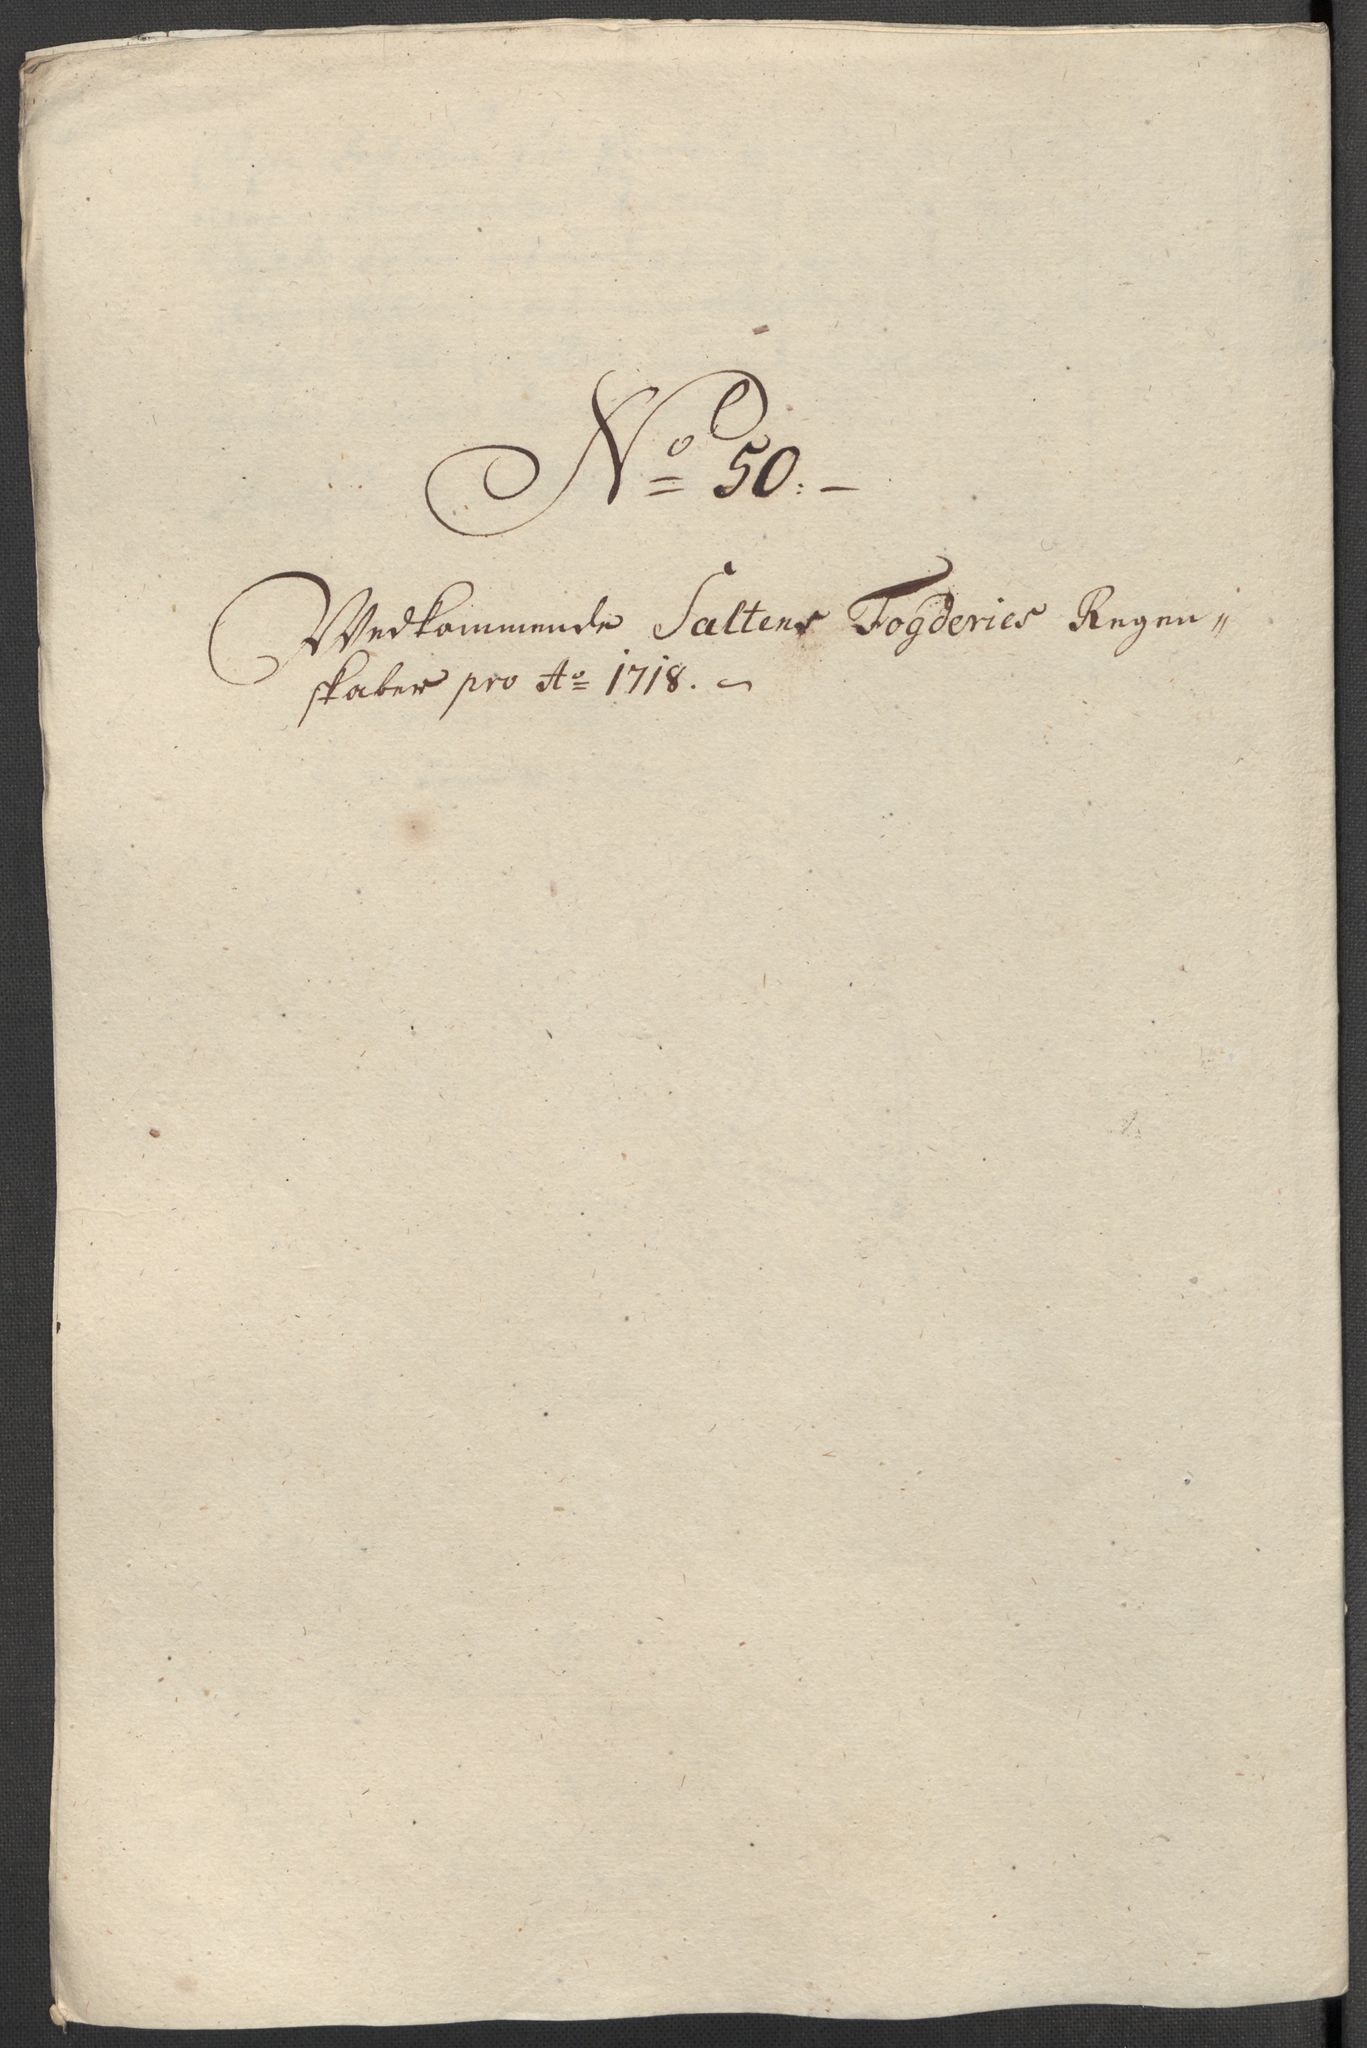 No 50. –
Wedkommende Saltens Fogderies Regen„
skaber pro Ao 1718.